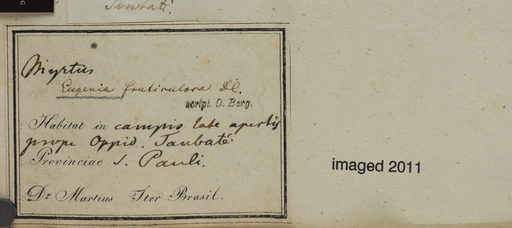 Taubaté.
Myrtus
Eugenia fruticulosa DC.
script. O. Berg.
Habitat in campis late apertis
prope Oppid. Taubaté
Provinciae S. Pauli.
Dr Martius Iter Brasil.
imaged 2011